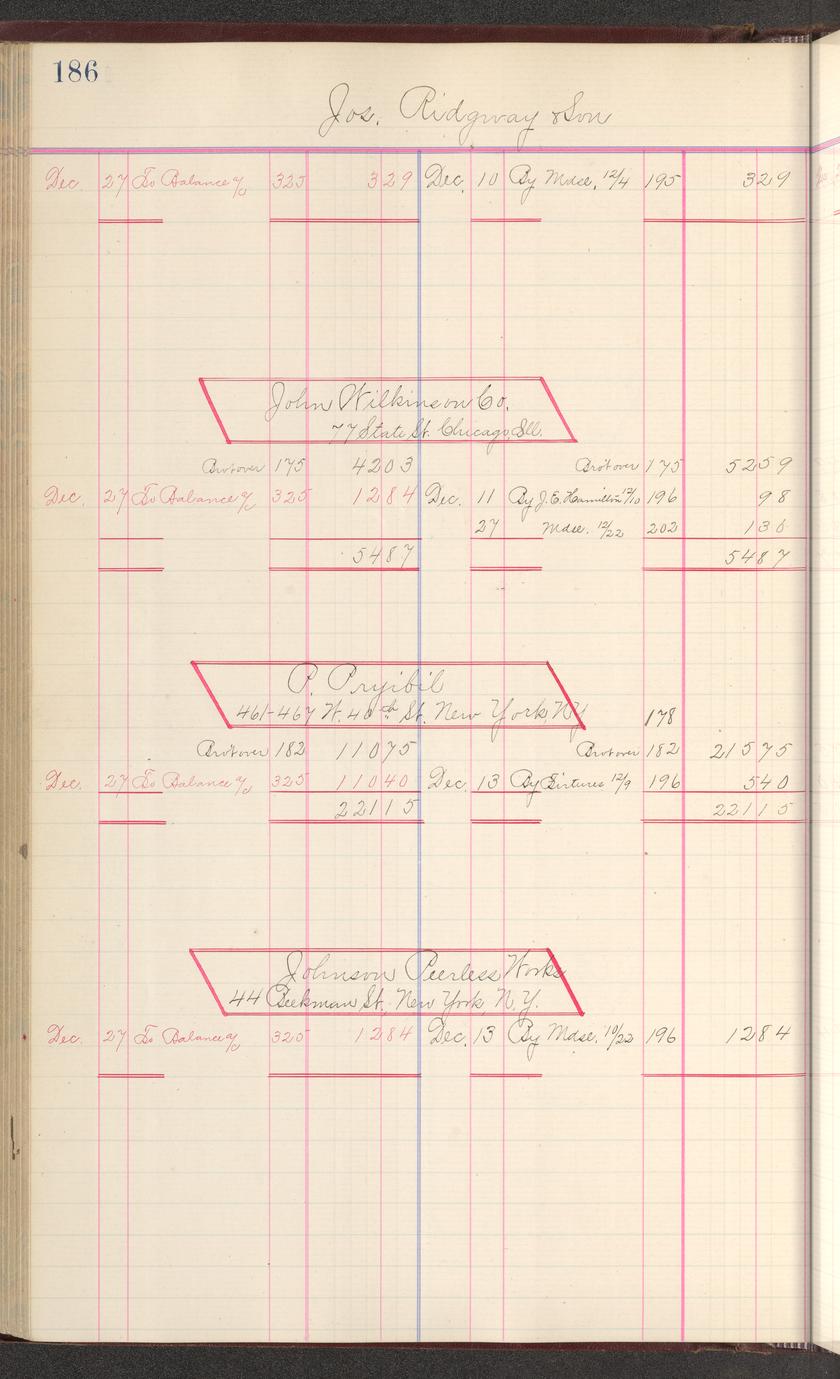 186
Jos. Ridgway & Son
Dec. 27 To Balance a/c 325 329 Dec. 10 By Mdse. 12/4 195 329
John Wilkinson Co.
77 State St. Chicago, Ill.
Bro't over 175 4203 Bro't over 175 5259
Dec. 27 To Balance a/c 325 1284 Dec. 11 By J.E. Hamilton 12/10 196 98
27 Mdse. 12/22 202 130
5487 5487
P. Pryibil
461-467 W. 40th St. New York, N.Y. 178
Bro't over 182 11075 Bro't over 182 21575
Dec. 27 To Balance a/c 325 11040 Dec. 13 By 12/9 196 540
22115 22115
Johnson Peerless Works
44 Beekman St. New York, N.Y.
Dec. 27 To Balance a/c 325 1284 Dec. 13 By Mdse. 10/22 196 1284